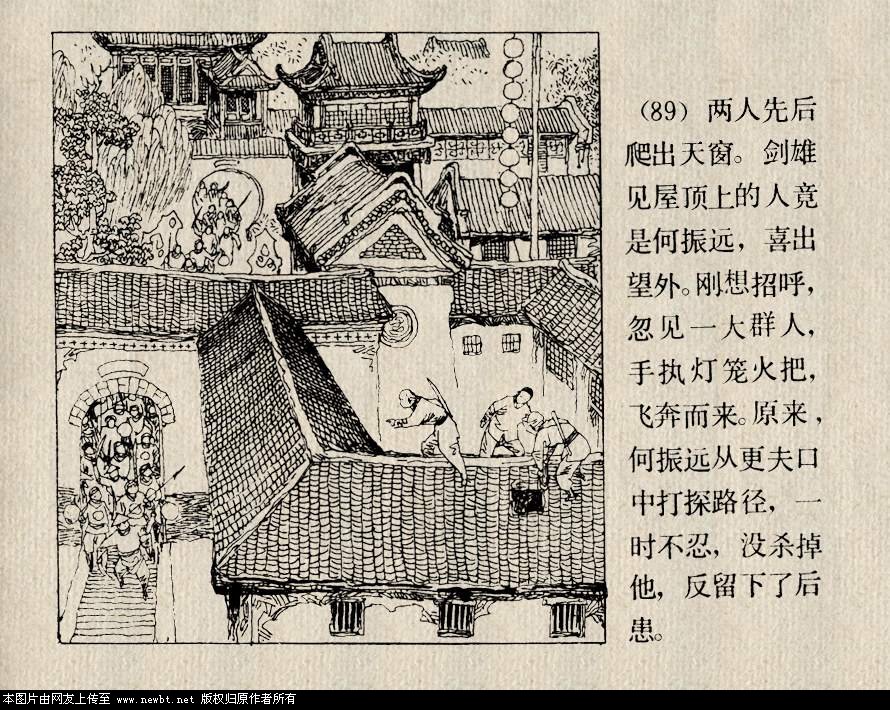 (89) 两人先后
爬出天窗。剑雄
见屋顶上的人竟
是何振远，喜出
望外。刚想招呼，
忽见一大群人，
手执灯笼火把，
飞奔而来。原来，
何振远从更夫口
中打探路径，一
时不忍，没杀掉
他，反留下了后
患。
本图片由网友上传至 www.newbt.net 版权归原作者所有